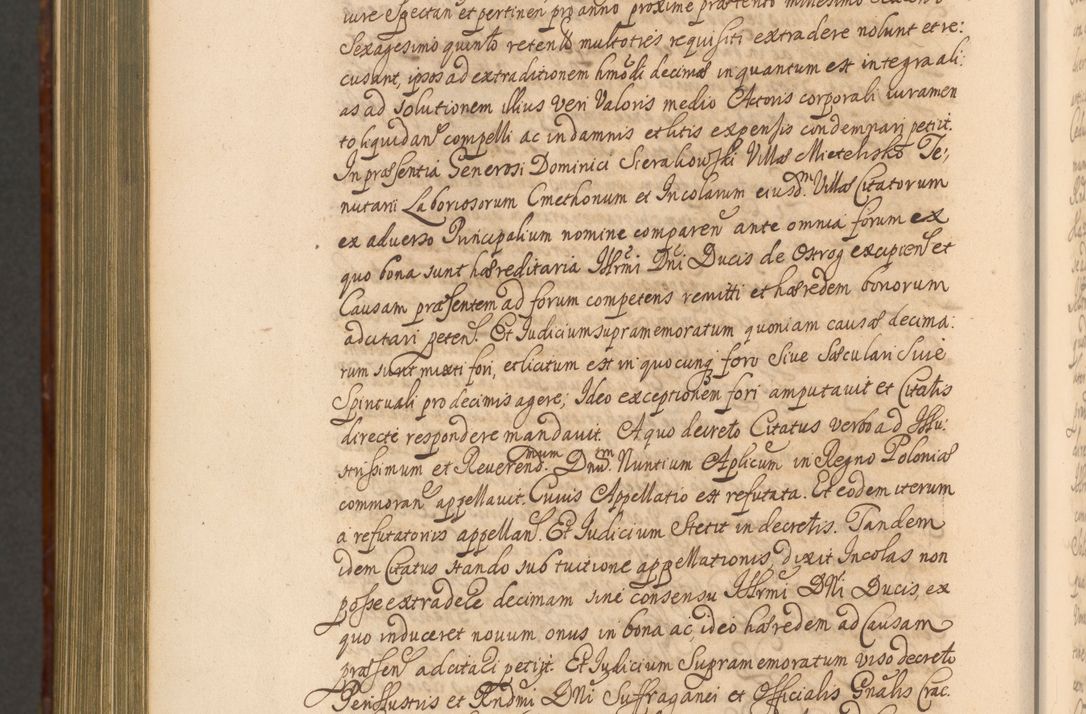 iure Spectan et pertinen pro anno proxime præterito millesimo
Sexagesimo quinto reten multoties requisiti extradere nolunt et re:
cusant, ipsos ad extraditionem hmõdi decimæ inquantum est integra ali:
as ad solutionem illius veri Valoris medio Actoris corporali iuramen
to liquidan compelli ac in damnis et litis expensis condemnari petijt.
In præsentia Generosi Dominici Sierakowski Villæ Mietelisko Te:
nutarij Laboriosorum Cmethonum et Incolarum eiusd. Villæ Citatorum
ex adverso Principalium nomine comparen ante omnia forum ex
quo bona sunt hæreditaria Illrmi Dni Ducis de Ostrog excipien et
Causam præsentem ad forum competens remitti et hæredem bonorum
adcitari peten. Et Iudicium supramemoratum quoniam causæ decima:
rum sunt mixti fori, et licitum est in quocunq foro Sive Sæculari Sive
Spirituali pro decimis agere; Ideo exceptionem fori amputavit et Citatis
directe respondere mandavit. A quo decreto Citatus verbo ad Illu:
strissimum et Reverendmum Dnum. Nuntium Aplicum in Regno Poloniæ
commoran appellavit. Cuius Appellatio est refutata. Et eodem iterum
a refutatorijs appellan. Et Iudicium Stetit in decretis. Tandem
idem Citatus stando sub tuitione appellationis, dixit Incolas non
posse extradere decimam sine consensu Illrmi DNi Ducis, ex
quo induceret novum onus in bona ac ideo hæredem ad Causam
præsen adcitari petijt. Et Iudicium Supramemoratum viso decreto
Perillustris et Rndmi DNi Suffraganei et Officialis Gnalis Crac.